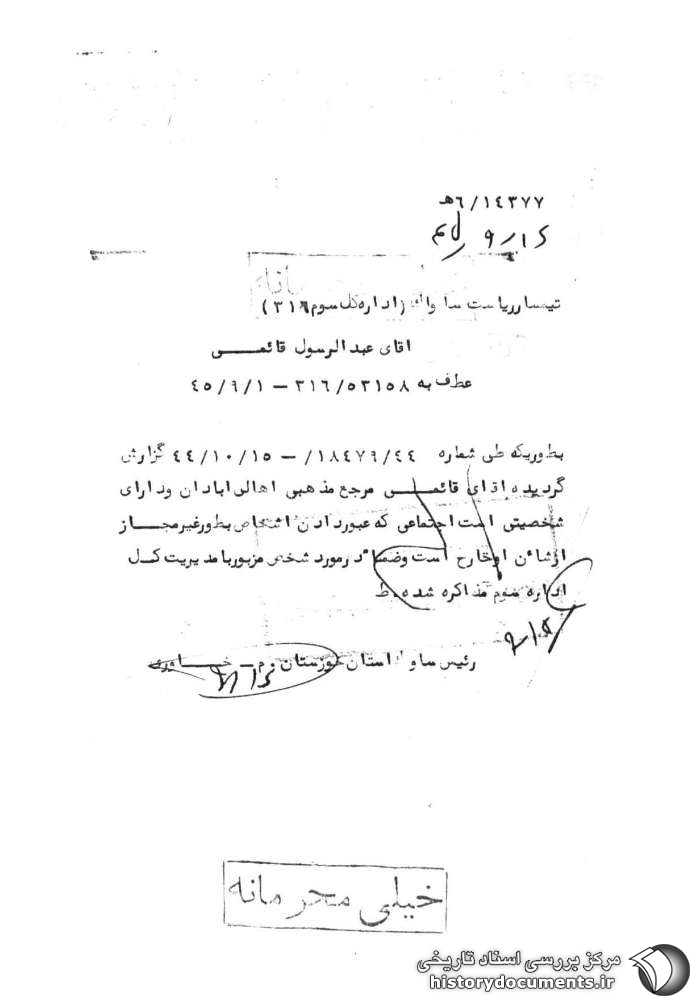 ۶/۱۴۳۷۷هـ
تیمسار ریاست ساواک (اداره کل سوم ۳۱۶)
اقای عبدالرسول قائمی
عطف به ۳۱۶/۵۳۱۵۸ – ۴۵/۹/۱
بطوریکه طی شماره ۱۸۴۷۹/۴۴/ – ۴۴/۱۰/۱۵ گزارش
گردیده اقای قائمی مرجع مذهبی اهالی ابادان ودارای
شخصیتی است اجتماعی که عبور دادن اشخاص بطور غیرمجاز
ازشائن اوخارج است وضمنا درمورد شخص مزبوربا مدیریت کل
اداره سوم مذاکره شده. ط
رئیس ساواک استان خوزستان. م – خاوری
خیلی محرمانه
مرکز بررسی اسناد تاریخی
historydocuments.ir